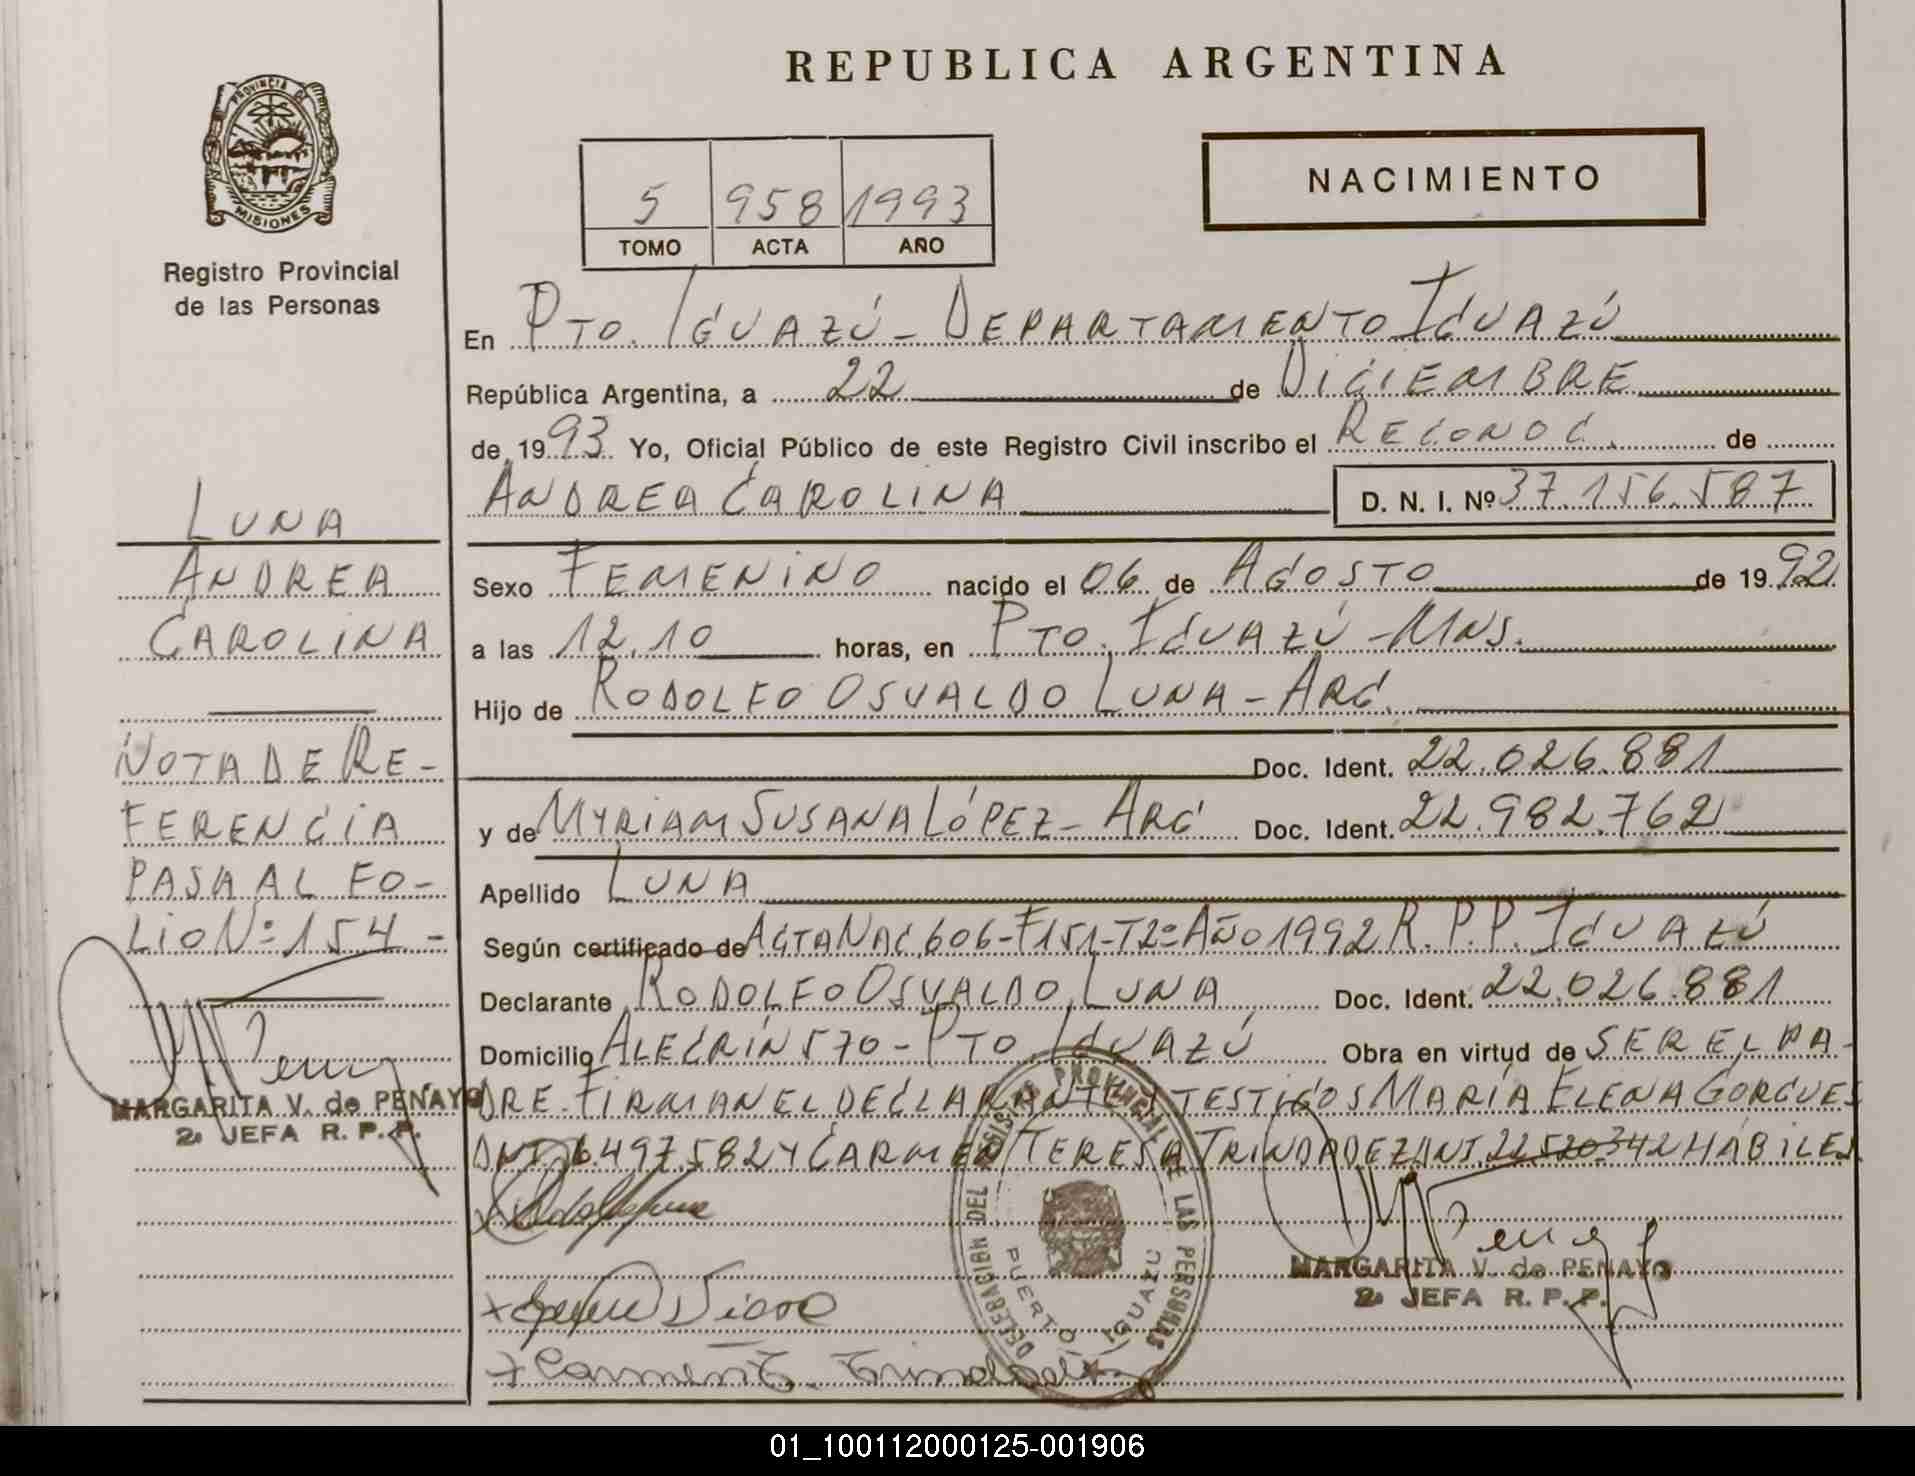 REPUBLICA ARGENTINA
PROVINCIA DE
MISIONES
Registro Provincial
de las Personas
5 958 1993
TOMO ACTA AÑO
NACIMIENTO
En PTO. IGUAZÚ - DEPARTAMENTO IGUAZÚ
República Argentina, a 22 de DICIEMBRE
de 1993 Yo, Oficial Público de este Registro Civil inscribo el RECONOC. de
ANDREA CAROLINA D. N. I. Nº 37.156.587
Sexo FEMENINO nacido el 06 de AGOSTO de 1992
a las 12.10 horas, en PTO. IGUAZÚ - MNS.
Hijo de RODOLFO OSVALDO LUNA - ARG.
Doc. Ident. 22.026.881
y de MYRIAM SUSANA LÓPEZ - ARG Doc. Ident. 22.982.762
Apellido LUNA
Según certificado de ACTA NAC. 606-F151-T2º AÑO 1992 R.P.P. IGUAZÚ
Declarante RODOLFO OSVALDO LUNA Doc. Ident. 22.026.881
Domicilio ALEGRÍN 570 - PTO. IGUAZÚ Obra en virtud de SER EL PA-
DRE. FIRMAN EL DECLARANTE Y TESTIGOS MARÍA ELENA GORGUES
DNI. 6.497.582 Y CARMEN TERESA TRINDADEZ DNI. 22.520.342 HÁBILES
LUNA
ANDREA
CAROLINA
NOTA DE RE-
FERENCIA
PASA AL FO-
LIO Nº 154 -
MARGARITA V. de PENAYO
2ª JEFA R. P. P.
DELEGACION DEL REGISTRO PROVINCIAL DE LAS PERSONAS
PUERTO IGUAZU
MARGARITA V. de PENAYO
2ª JEFA R. P. P.
Carmen T. Trindade
01_100112000125-001906